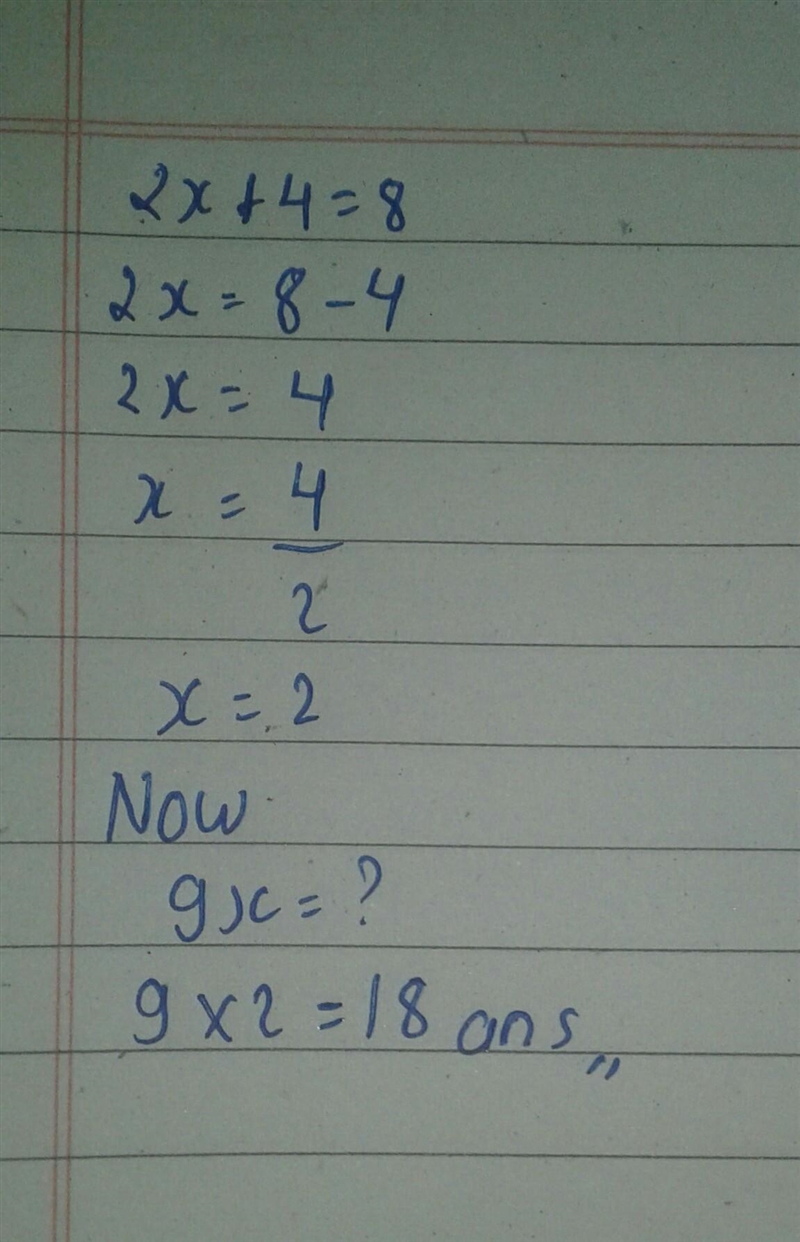 2x + 4 = 8
2x = 8 - 4
2x = 4
x = 4
2
x = 2
Now
9x = ?
9 × 2 = 18 ans,,